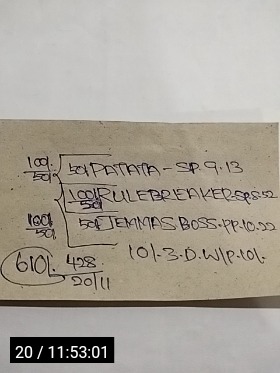 100/- 50/- 50/- PATATA - SP. 9.13
100/- 50/- RULEBREAKER.SP.8.52
100/- 50/- 50/- JEMMAS BOSS.PP.10.22
10/-.3.D.W/P.10/-
610/- 428
20/11
20 / 11:53:01